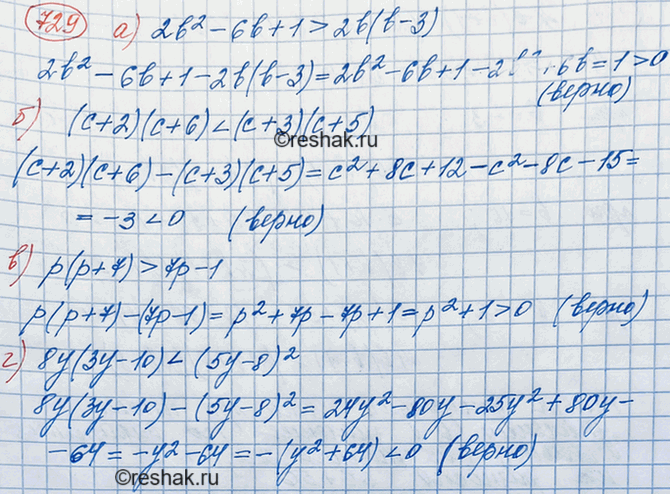 729 а) 2b² − 6b + 1 > 2b(b − 3)
2b² − 6b + 1 − 2b(b − 3) = 2b² − 6b + 1 − 2b² + 6b = 1 > 0
(верно)
б) (c + 2)(c + 6) < (c + 3)(c + 5)
(c + 2)(c + 6) − (c + 3)(c + 5) = c² + 8c + 12 − c² − 8c − 15 =
= −3 < 0 (верно)
в) p(p + 7) > 7p − 1
p(p + 7) − (7p − 1) = p² + 7p − 7p + 1 = p² + 1 > 0 (верно)
г) 8y(3y − 10) < (5y − 8)²
8y(3y − 10) − (5y − 8)² = 24y² − 80y − 25y² + 80y −
− 64 = −y² − 64 = −(y² + 64) < 0 (верно)
©reshak.ru
©reshak.ru